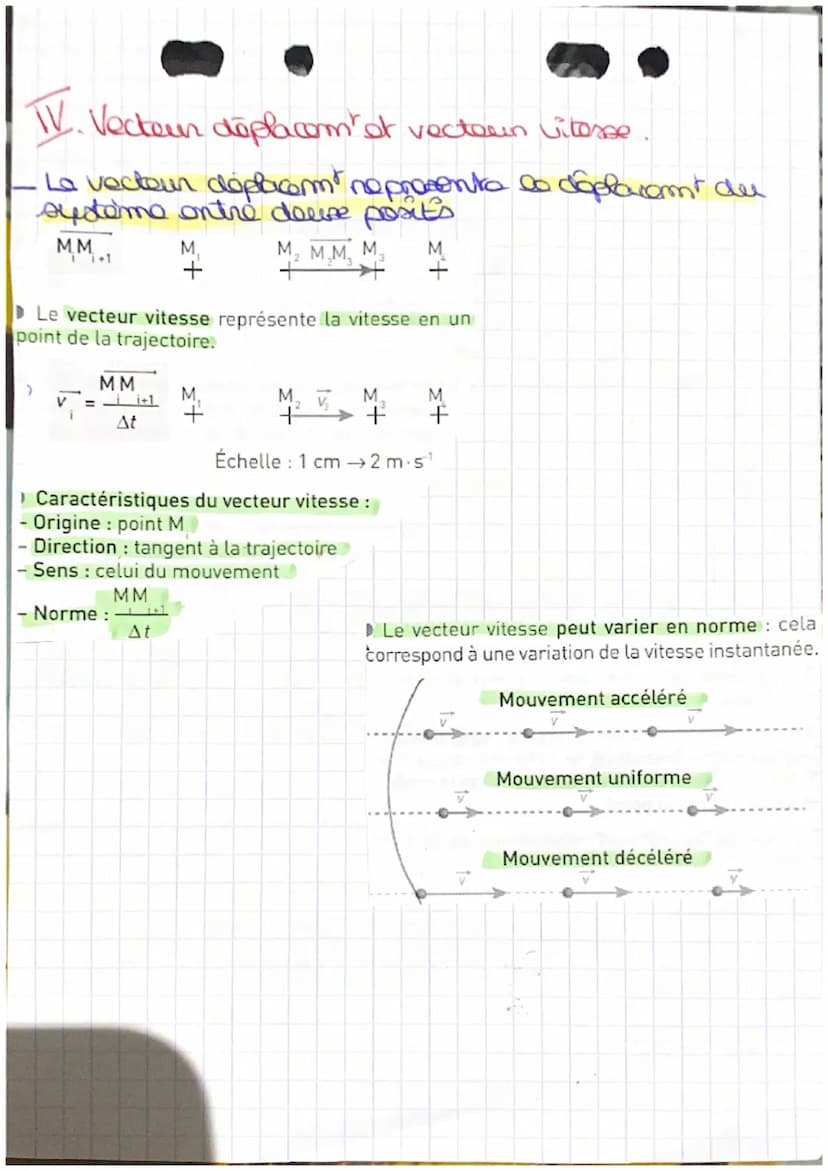 IV. Vecteur déplacemt et vecteur vitesse.
- Le vecteur déplacemt représente le déplacemt du
système entre deux posits
MiMi+1 M1 M2 M2M3 M3 M4
Le vecteur vitesse représente la vitesse en un
point de la trajectoire.
vi = MiMi+1 / Δt M1 M2 v2 M3 M4
Échelle : 1 cm → 2 m·s-1
Caractéristiques du vecteur vitesse :
- Origine : point Mi
- Direction : tangent à la trajectoire
- Sens : celui du mouvement
- Norme : MiMi+1 / Δt
Le vecteur vitesse peut varier en norme : cela
correspond à une variation de la vitesse instantanée.
Mouvement accéléré
v v v
Mouvement uniforme
v v v
Mouvement décéléré
v v v